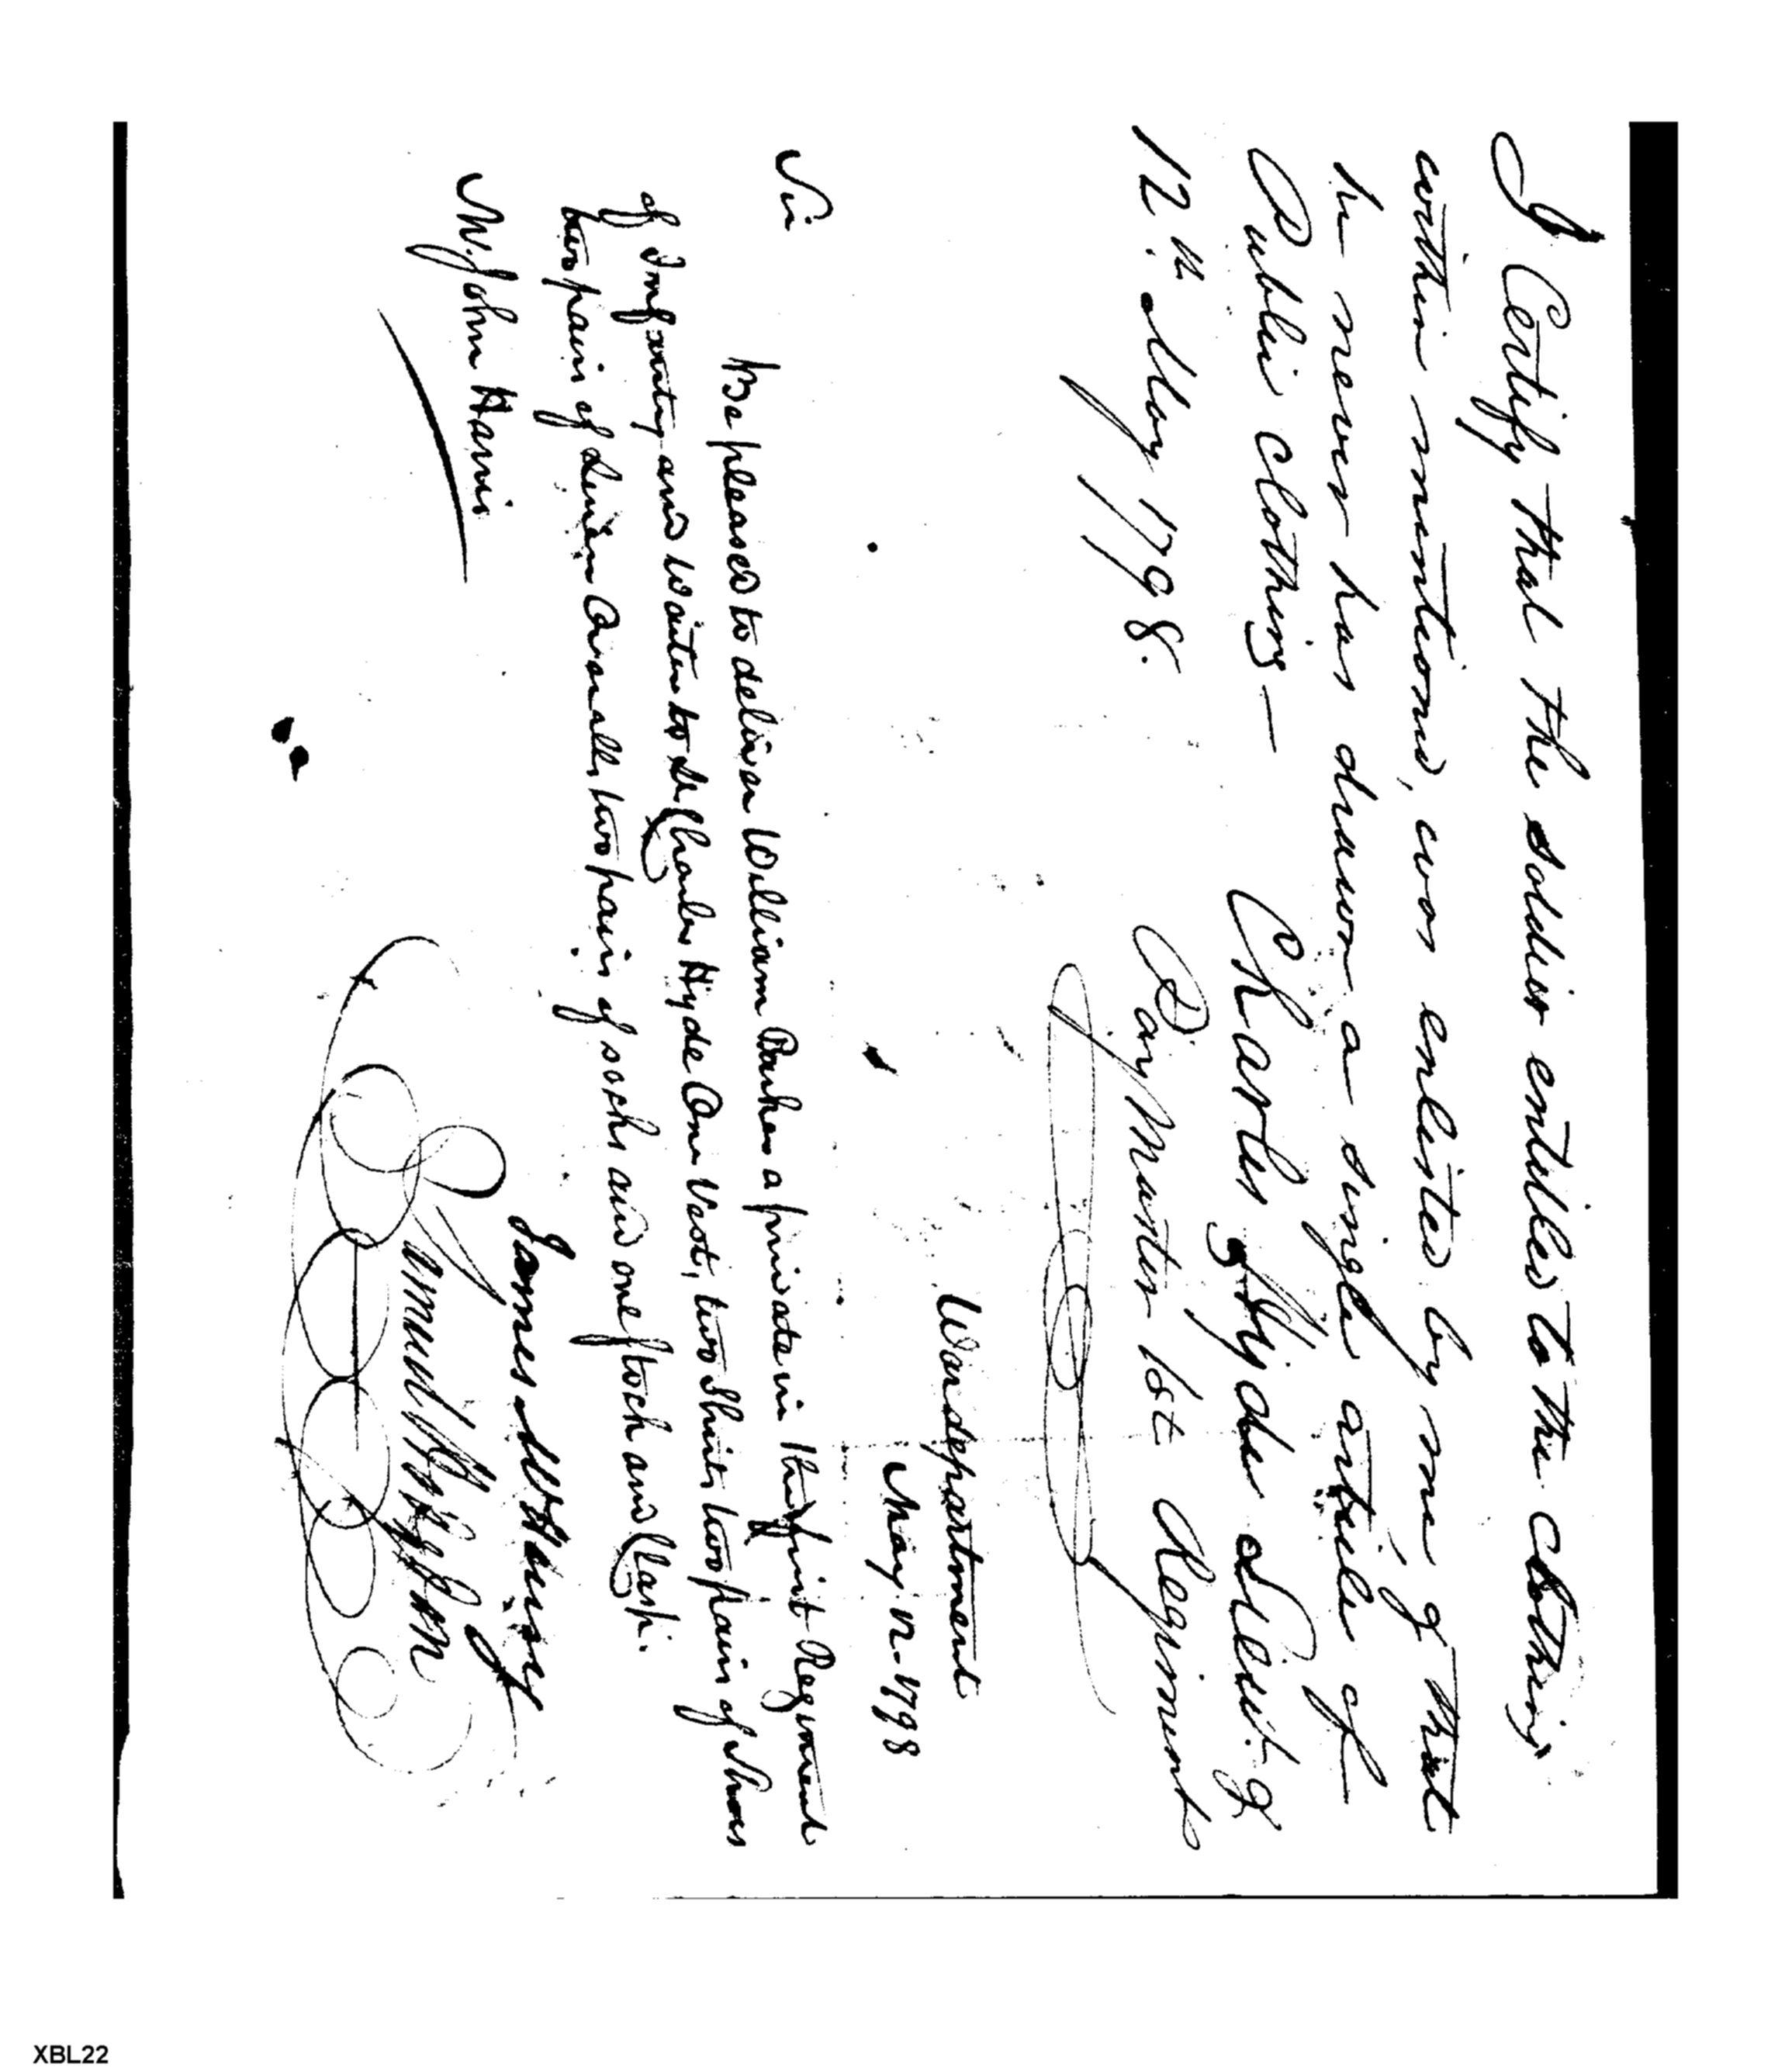 I Certify that the soldier entitled to the clothing
within mentioned, was enlisted by me, & that
he never has drawn a single article of
Public clothing —
Charles Hyde Lieut. &
12th. May 1798. PayMaster 1st Regiment
War department
May 12 1798
Sir
Be pleased to deliver William Barker a private in the first Regiment
of Infantry and Waiter to Lt. Charles Hyde One Vest, two Shirts two pair of Shoes
two pair of Linen Overalls, two pair of socks and one stock and Clasp.
James McHenry
Mr. John Harris
XBL22